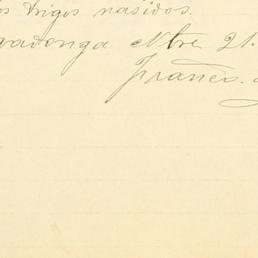 trigos nasidos.
vadonga Nbre 21.
Franco.